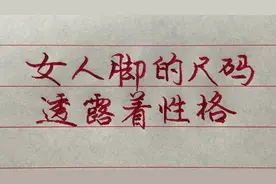 女人脚的尺码
透露着性格